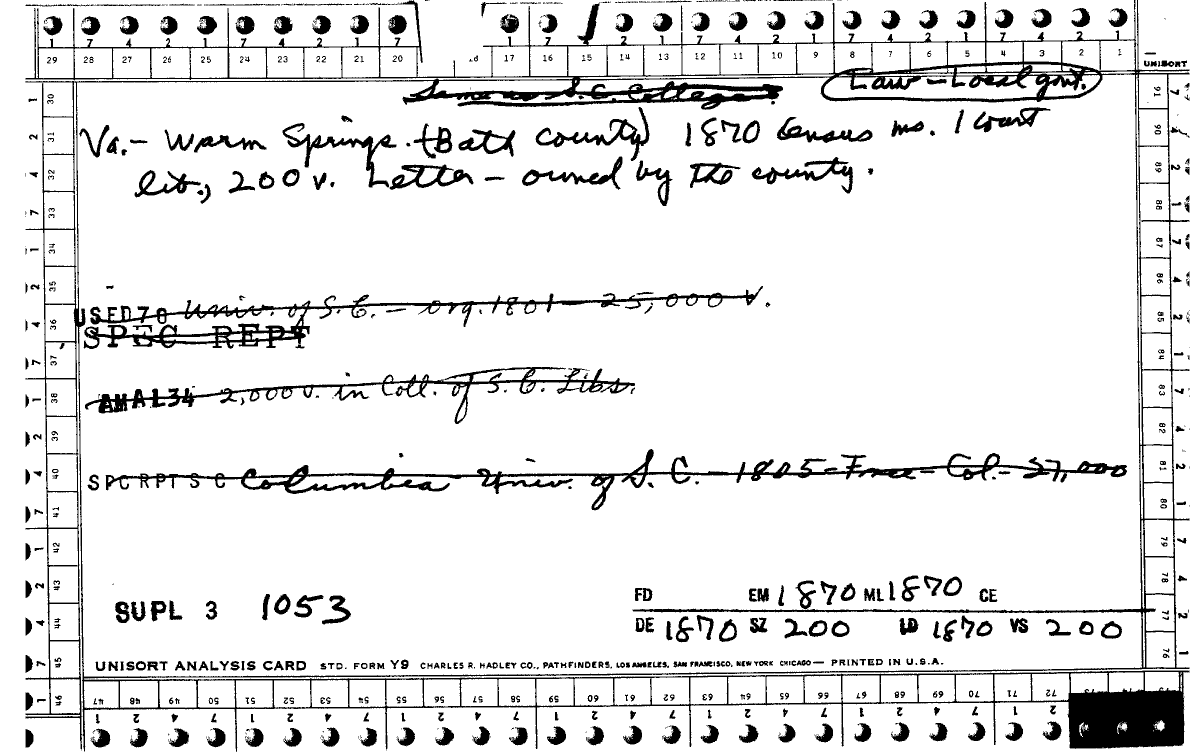 1 7 4 2 1 7 4 2 1 7 1 7 4 2 1 7 4 2 1 8 7 4 2 1
29 28 27 26 25 24 23 22 21 20 18 17 16 15 14 13 12 11 10 9 8 7 6 5 4 3 2 1 UNISORT
Same as S. C. College Law – Local govt.
Va. – Warm Springs. (Bath County) 1870 Census ms. 1 court
lib., 200 v. Letter – owned by the county.
USED70 Univ. of S.C. – org. 1801 – 25,000 v.
SPEC REPT
AMA134 2,000 v. in Coll. of S. C. Libs.
SPCRPT S C Columbia Univ. of S. C. – 1805 – Free – Col. – 27,000
SUPL 3 1053
FD EM 1870 ML 1870 CE
DE 1870 SZ 200 LD 1870 VS 200
UNISORT ANALYSIS CARD STD. FORM Y9 CHARLES R. HADLEY CO., PATHFINDERS, LOS ANGELES, SAN FRANCISCO, NEW YORK CHICAGO — PRINTED IN U.S.A.
47 48 49 50 51 52 53 54 55 56 57 58 59 60 61 62 63 64 65 66 67 68 69 70 71 72